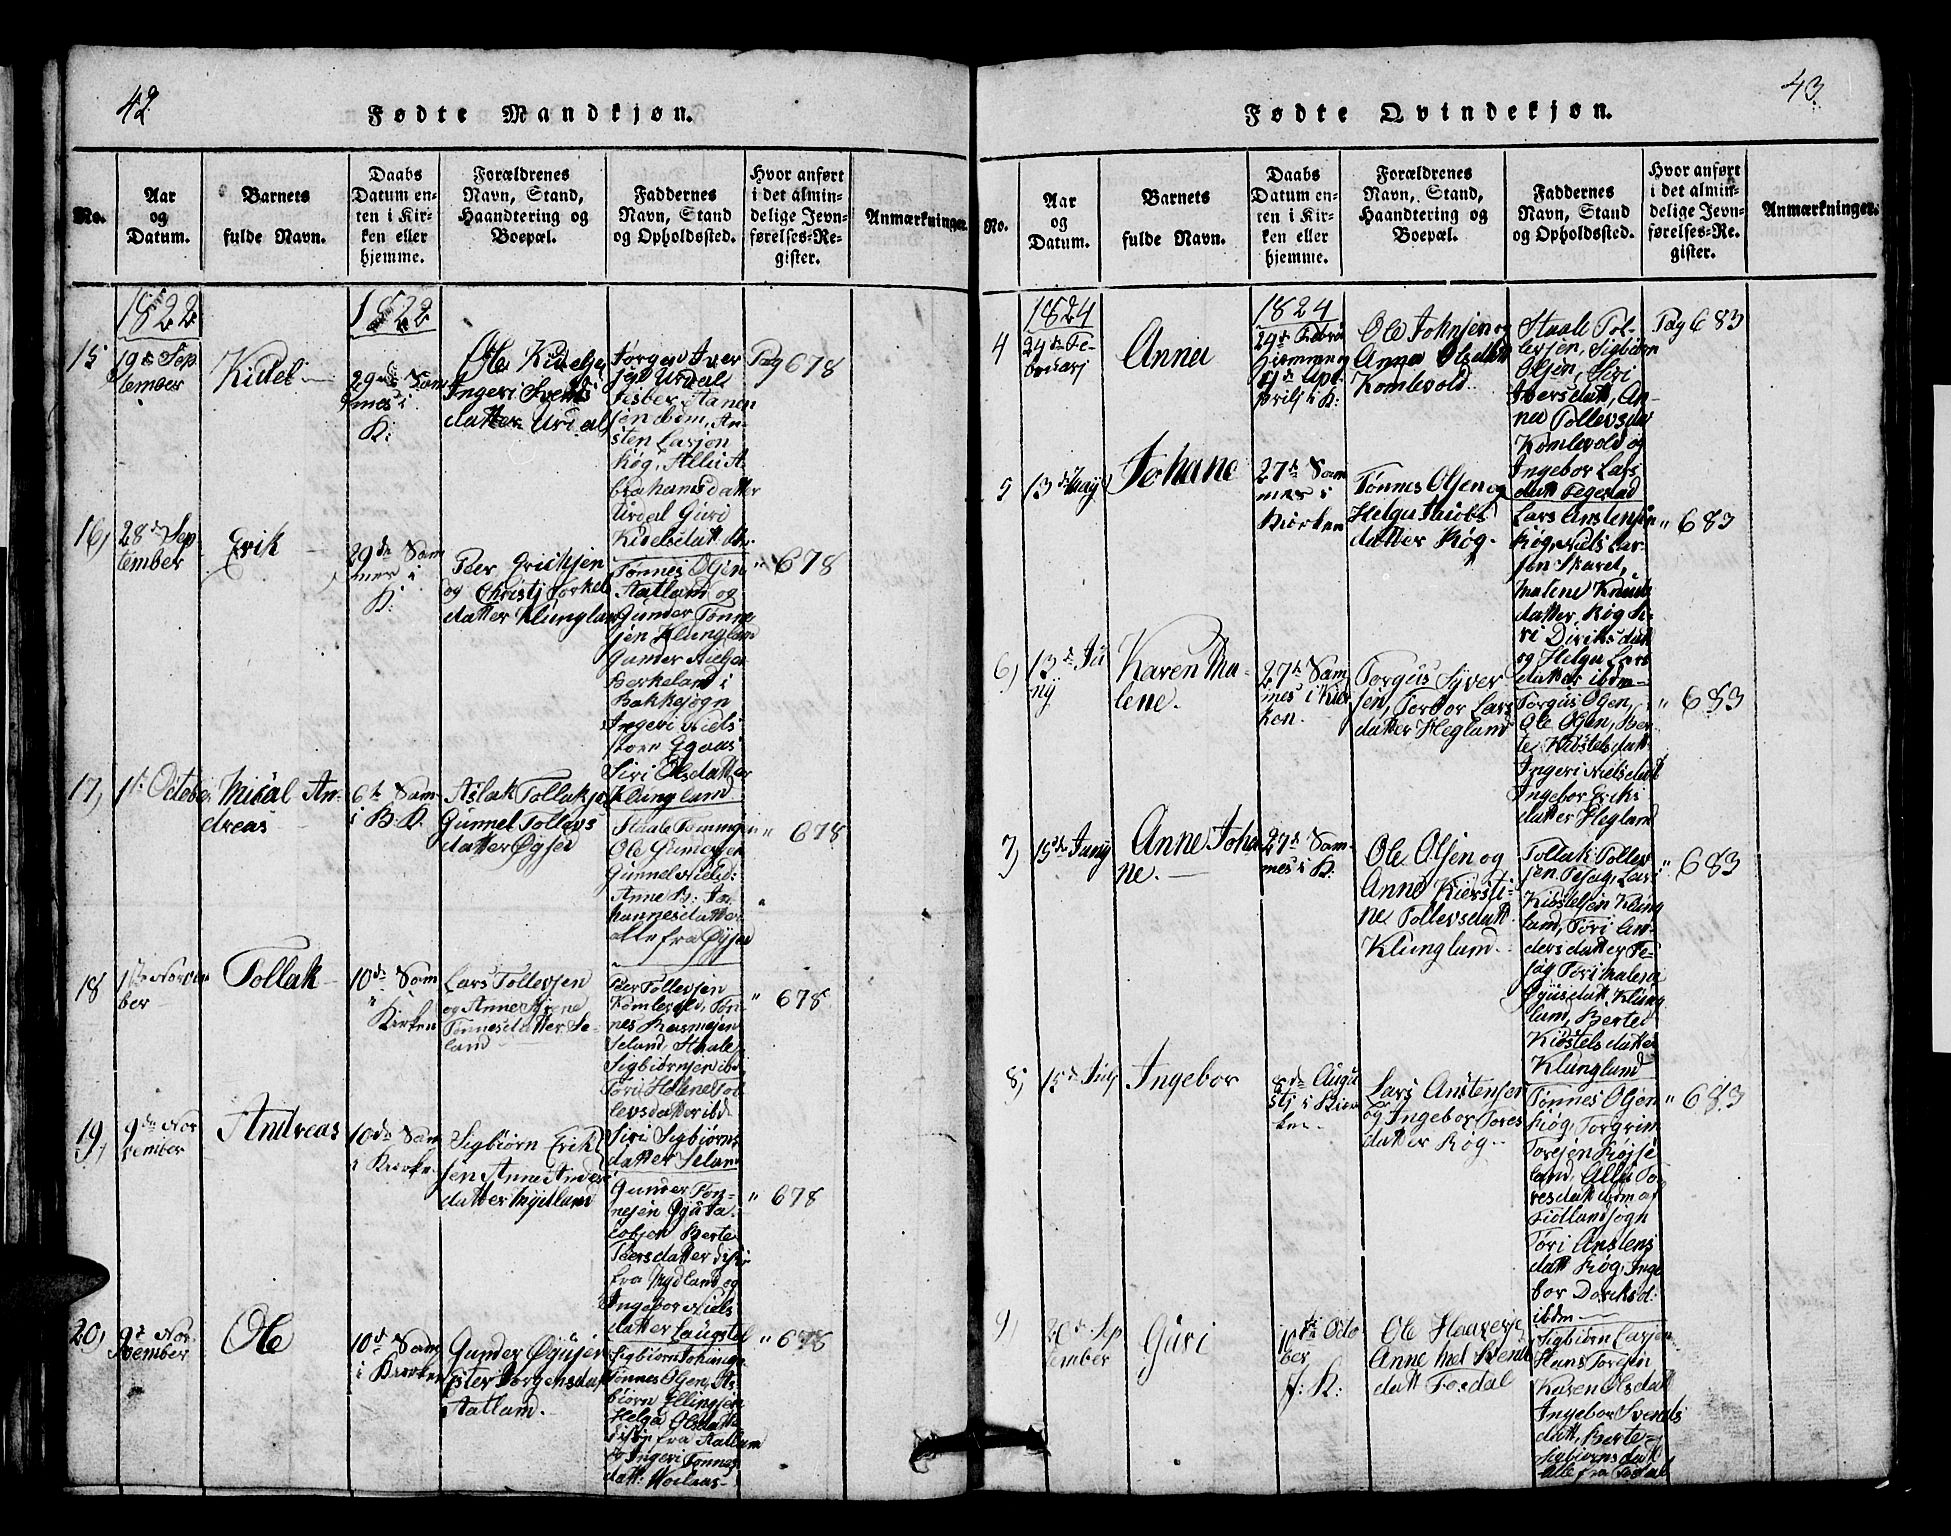 42
Fødte Mandkjøn.
No.
Aar
og
Datum.
Barnets
fulde Navn.
Daabs
Datum en-
ten i Kir-
ken eller
hjemme.
Forældrenes
Navn, Stand,
Haandtering og
Boepæl.
Faddernes
Navn, Stand
og Opholdssted.
Hvor anført
i det almin-
delige Jevn-
førelses-Re-
gister.
Anmærkninger.
1822
1822
15
19de Sep
tember
Kidel
29de Sam
mes i
K:
Ole Kidelsen
Ingeri Svends
datter Urdal
Jørgen Iver
sen Urdal
sten Larsen
Røg, A
brahamsdatter
Urdal Guri
Kidelsdatt
Pag 678
16,
28de Sep
tember
Erik
29de Sam
mes i
K:
Peer Erichsen
og Christj Torkels
datter Klungland
Tønnes Olsen
Aatland og
Gunder Tønne
sen Klungland
Gunder Nielsen
Berkeland i
Bakkesogn
Ingeri Niels
Siri Olsdatter
Klungland
" 678
17,
1t October
Misal An-
dreas
6te Sam
i B. K.
Aslak Tollaksen
Gunnel Tollevs
datter Øysed
Staale Tønnesen
Ole Gunder
Gunnel Nielsd:
Anne B: Jo
hannesdatter
alle fra Øysed
" 678
18
Novem
ber
Tollak
10de Sam
"
Kirken
Lars Tollevsen
og Anne
Tønnesdatter Se-
land
Peer Tollevsen
Komlevold, Tøn-
nes Rasmusen
Seland, Staale
Sigbiørnsen ibd
Tori Helene Tol
levsdatter ibd
Siri Sigbiørns
datter Seland
" 678
19,
9de No-
vember
Andreas
10de Sam
i Kirken
Sigbiørn Erik
sen Anne Anders
datter Mydland
Gunder Tøn-
nesen Ja-
cobsen Berte
Peersdatter disse
fra Mydland og
Ingebor Niels
datter Laugstøl
" 678
20,
9de No-
vember
Ole
10de Sam
i Kirken
Gunder Øyusen
Ester Jørgensdatt
Aatland.
Sigbiørn Johannes
Tønnes Olsen, As
biørn Ellingsen
Helga Olsdatter
disse fra Aatlan
og Ingeri Tønnes
datt:
" 678
43
Fødte Qvindekjøn.
No.
Aar
og
Datum.
Barnets
fulde Navn.
Daabs
Datum en-
ten i Kir-
ken eller
hjemme.
Forældrenes
Navn, Stand,
Haandtering og
Boepæl.
Faddernes
Navn, Stand
og Opholdssted.
Hvor anført
i det almin-
delige Jevn-
førelses-Re-
gister.
Anmærkninger.
1824
1824
4
24de Fe-
bruarj
Anna
29de Febru
hiemme og
4de Apl
prilj i K:
Ole Johnsen og
Anna Olsdatt
Komlevold.
Staale Tol-
levsen, Sigbiørn
Olsen, Siri
Iversdatt, An-
na Tollevsda
Komlevold og
Ingebor Lars
datt Fegestad
Pag 683
5
13de May
Johane
27de Sam
mes i
Kirken
Tønnes Olsen og
Helga Jacobs
datter Røg.
Lars Anstensen
Røg, Niels Lar-
sen Skaret,
Malene Knuds
datter Røg Si-
ri Diriksdatt
og Helga Lars
datter ibdm
" 683
6,
13de Ju
nÿ
Karen Ma-
lene.
27de Sam
mes i Kir
ken.
Torgus Syver
sen, Torbor Lars
datter Hegland
Torgus Olsen,
Ole Olsen, Ber-
te Kidstelsdatt
Ingeri Nielsdatt
Ingebor Eriks
datter Hegland
" 683
7,
15de Junÿ
Anne Joha
ne.
27de Sam-
mes i K.
Ole Olsen og
Anne Kiersti-
ne Tollevsdatt
Klungland.
Tollak Tollev
sen Tesag, Lars
Kidstelsen Klung
land, Tori An-
dersdatter Te-
sag Tori Malena
Øyusdatt Klung
land, Berte
Kidstelsdatter
Klungland
" 683
8,
15de July
Ingebor
8de Augu
stj i Kir
ken
Lars Anstensen
og Ingebor Tores
datter Røg.
Tønnes Olsen
Røg, Torgrim
Toresen Røjse
land, To-
resdatt ibdm af
Fidlandsogn
Tori Anstens
datt Røg, Inge
bor Doriksd:
ibdm
" 683
9,
20de Sep
tember
Guri
10de Octo
ber
i K:
Ole Haaverse
Anne Mal Bend
datt Tosdal
Sigbiørn Larsen
Hans Toresen
Karen Olsdatt
Ingebor Svends
datt, Berte
Sigbiørnsdatt
alle fra Tosdal